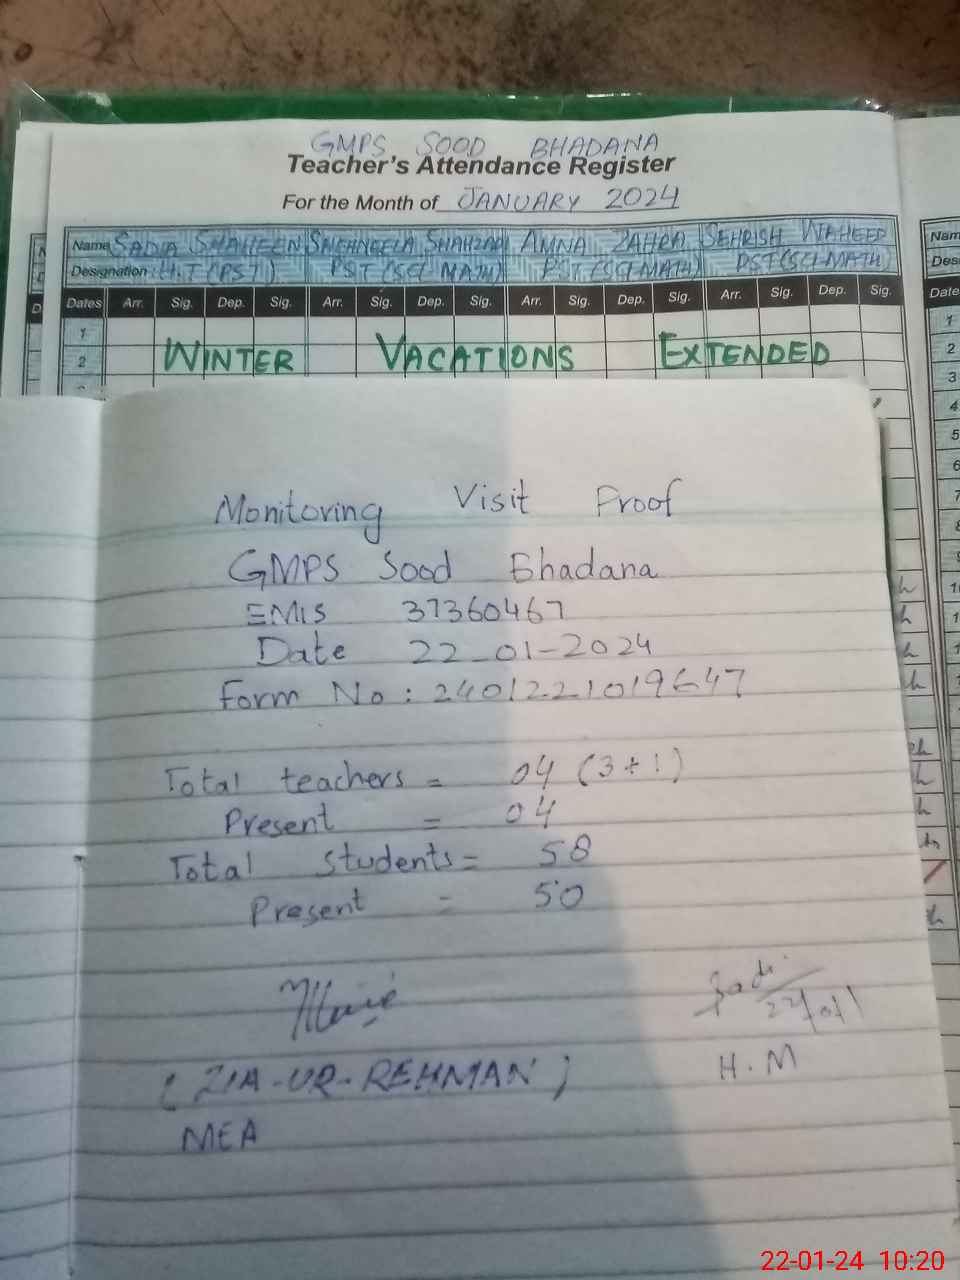 GMPS SOOD BHADANA
Teacher's Attendance Register
For the Month of JANUARY 2024
Name SADIA SHAHEEN SHEHNEELA SHAHZAD AMNA ZAHRA SEHRISH WAHEED Nam
Designation H.T (PST) PST (SCI-MATH) PST (SCI-MATH) PST (SCI-MATH) Des
Dates Arr. Sig. Dep. Sig. Arr. Sig. Dep. Sig. Arr. Sig. Dep. Sig. Arr. Sig. Dep. Sig. Date
1 1
2 WINTER VACATIONS EXTENDED 2
3
4
5
6
7
Monitoring Visit Proof
GMPS Sood Bhadana
EMIS 37360467
Date 22-01-2024
Form No: 2401221019647
Total teachers = 04 (3+1)
Present = 04
Total students = 58
Present = 50
22/01
(ZIA-UR-REHMAN)
H.M
MEA
22-01-24 10:20